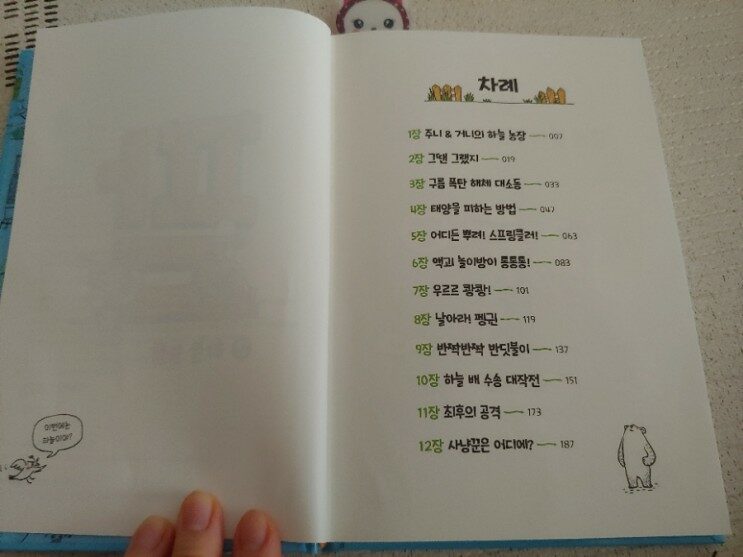 이번에는
하늘이야?
차례
1장 주니 & 거니의 하늘 농장 007
2장 그땐 그랬지 019
3장 구름 폭탄 해체 대소동 033
4장 태양을 피하는 방법 047
5장 어디든 뿌려! 스프링클러! 063
6장 액괴 놀이방이 통통통! 083
7장 우르르 쾅쾅! 101
8장 날아라! 펭귄 119
9장 반짝반짝 반딧불이 137
10장 하늘 배 수송 대작전 151
11장 최후의 공격 173
12장 사냥꾼은 어디에? 187